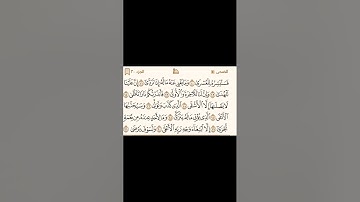 فَسَنُيَسِّرُهُۥ لِلْعُسْرَىٰ ١٠ وَمَا يُغْنِى عَنْهُ مَالُهُۥٓ إِذَا تَرَدَّىٰٓ ١١ إِنَّ عَلَيْنَا
لَلْهُدَىٰ ١٢ وَإِنَّ لَنَا لَلْـَٔاخِرَةَ وَٱلْأُولَىٰ ١٣ فَأَنذَرْتُكُمْ نَارًا تَلَظَّىٰ ١٤
لَا يَصْلَىٰهَآ إِلَّا ٱلْأَشْقَى ١٥ ٱلَّذِى كَذَّبَ وَتَوَلَّىٰ ١٦ وَسَيُجَنَّبُهَا
ٱلْأَتْقَى ١٧ ٱلَّذِى يُؤْتِى مَالَهُۥ يَتَزَكَّىٰ ١٨ وَمَا لِأَحَدٍ عِندَهُۥ مِن نِّعْمَةٍ
تُجْزَىٰٓ ١٩ إِلَّا ٱبْتِغَآءَ وَجْهِ رَبِّهِ ٱلْأَعْلَىٰ ٢٠ وَلَسَوْفَ يَرْضَىٰ ٢١